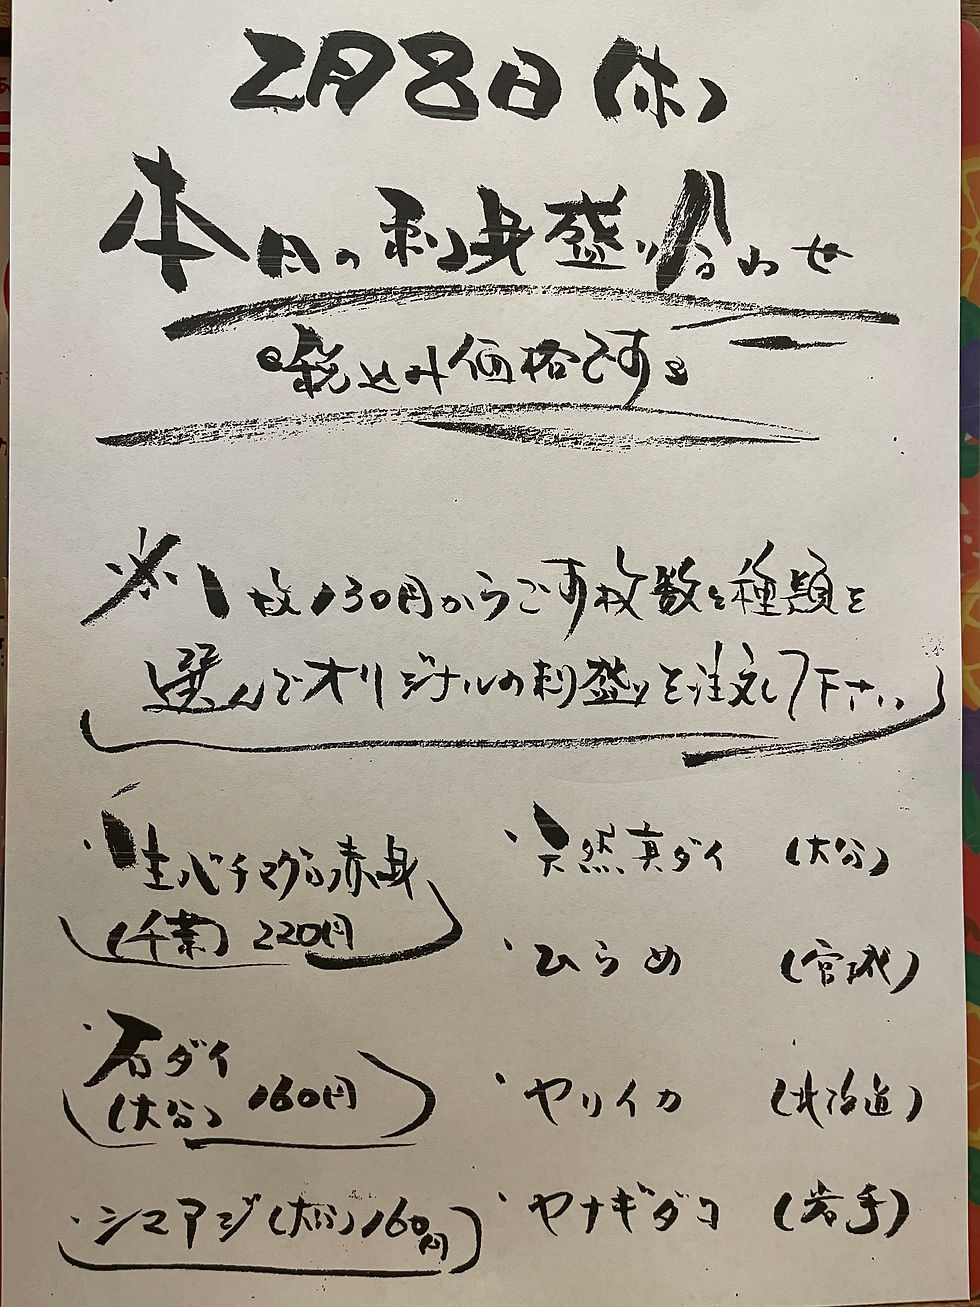 2月8日(水)
本日の刺身盛り合わせ
税込み価格です
※1枚130円からです枚数と種類を
選んでオリジナルの刺盛りを注文して下さい
・生バチマグロ赤身
(千葉) 220円
・石ダイ
(大分) 160円
・シマアジ(大分)160円
・天然真ダイ (大分)
・ひらめ (宮城)
・ヤリイカ (北海道)
・ヤナギダコ (岩手)